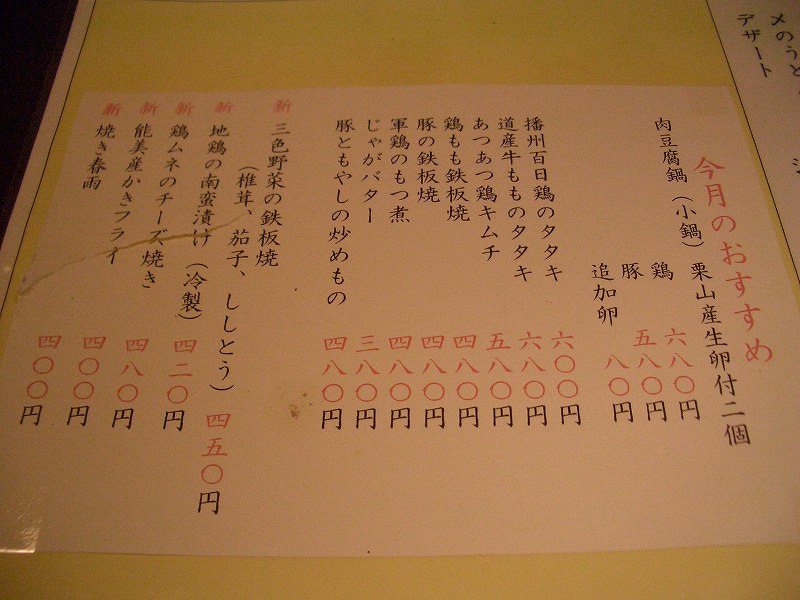 メのうど
デザート
今月のおすすめ
肉豆腐鍋(小鍋) 栗山産生卵付二個
鶏 六八〇円
豚 五八〇円
追加卵 八〇円
播州百日鶏のタタキ 六〇〇円
道産牛もものタタキ 六八〇円
あつあつ鶏キムチ 五八〇円
鶏もも鉄板焼 四八〇円
豚の鉄板焼 四八〇円
軍鶏のもつ煮 四八〇円
じゃがバター 三八〇円
豚ともやしの炒めもの 四八〇円
新 三色野菜の鉄板焼
(椎茸、茄子、ししとう) 四五〇円
新 地鶏の南蛮漬け(冷製) 四二〇円
新 鶏ムネのチーズ焼き 四八〇円
新 能美産かきフライ 四〇〇円
新 焼き春雨 四〇〇円